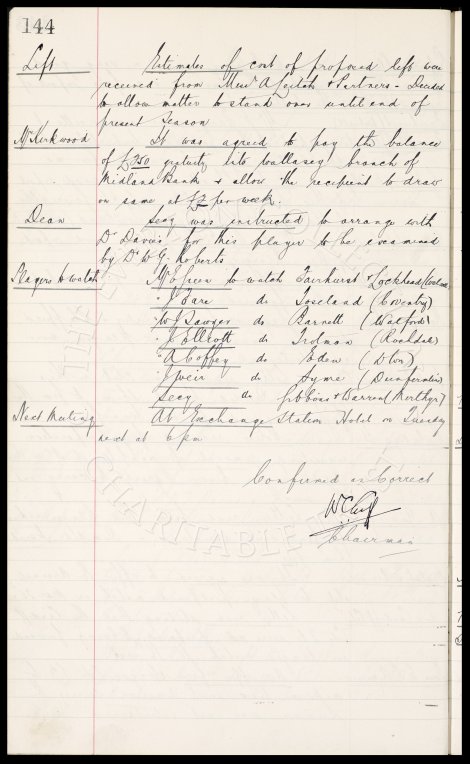 144
Lift Estimates of cost of proposed lift were
received from Messrs A Leitch & Partners - Decided
to allow matter to stand over until end of
present season
Mr Kirkwood It was agreed to pay the balance
of £750 gratuity into Wallasey branch of
Midland Bank & allow the recipient to draw
on same at £2 per week.
Dean Secy was instructed to arrange with
Dr Davies for this player to be examined
by Dr W G Roberts
Players to watch Mr E Green to watch Fairhurst & Lockhead
" J Fare do Toseland (Coventry)
" W J Sawyer do Barnett (Watford)
" J Ellcott do (Rochdale)
" A Coffey do Eden
" J Weir do Syme (Dunfermline)
Secy do Gibbons & Warren (Merthyr)
Next Meeting At Exchange Station Hotel on Tuesday
next at 6 pm
Confirmed as Correct
W C Cuff
Chairman
CHARITABLE